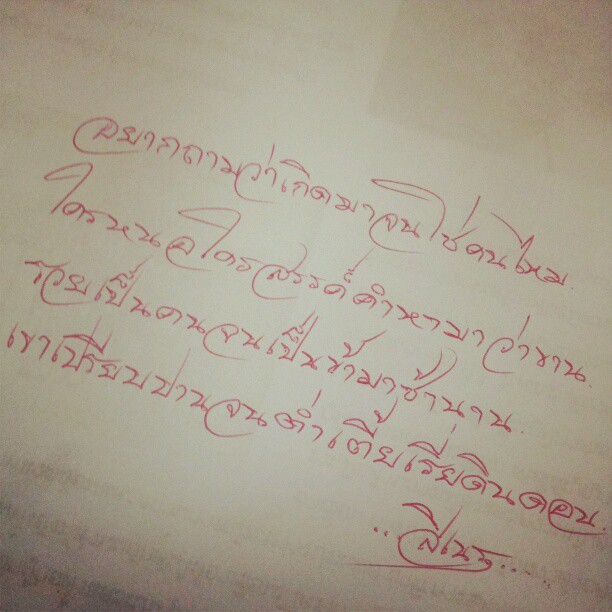 อยากถามว่าเกิดมาจนใช่คนไหม.
ใครหนอใครสรรค์คำหามาว่าขาน.
รวยเป็นคนจนเป็นข้ามาช้านาน.
เขาเปรียบปานจนต่ำเตี้ยเรี่ยดินดอน.